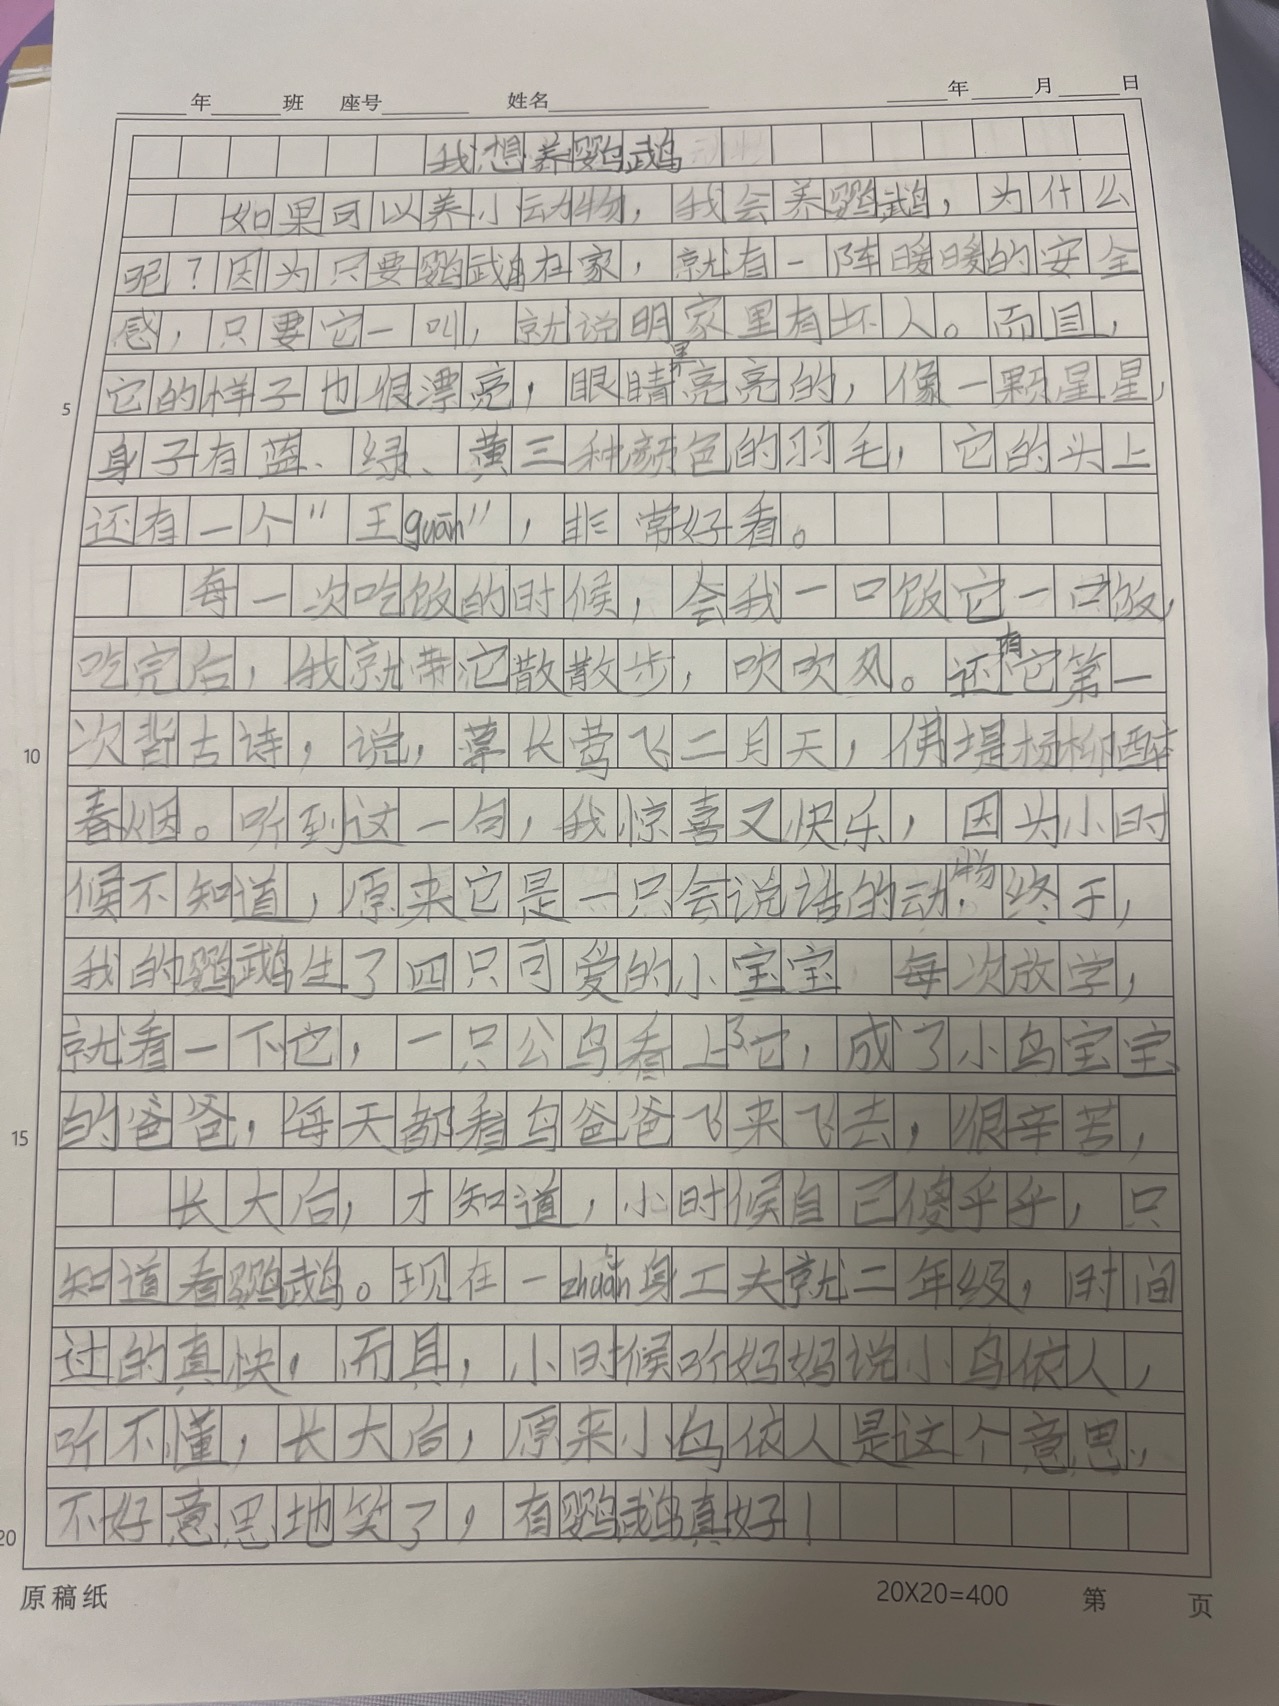 年 班 座号 姓名 年 月 日
我想养鹦鹉
如果可以养小动物，我会养鹦鹉，为什么
呢？因为只要鹦鹉在家，就有一阵暖暖的安全
感，只要它一叫，就说明家里有坏人。而且，
它的样子也很漂亮，眼睛黑亮亮的，像一颗星星，
5
身子有蓝、绿、黄三种颜色的羽毛，它的头上
还有一个"王guān"，非常好看。
每一次吃饭的时候，会我一口饭它一口饭，
吃完后，我就带它散散步，吹吹风。还有它第一
次背古诗，说，草长莺飞二月天，佛堤杨柳醉
10
春烟。听到这一句，我惊喜又快乐，因为小时
候不知道，原来它是一只会说话的动物。终于，
我的鹦鹉生了四只可爱的小宝宝 每次放学，
就看一下它，一只公鸟看上了它，成了小鸟宝宝
的爸爸，每天都看鸟爸爸飞来飞去，很辛苦，
15
长大后，才知道，小时候自己傻乎乎，只
知道看鹦鹉。现在一zhuǎn身工夫就二年级，时间
过的真快，而且，小时候听妈妈说小鸟依人，
听不懂，长大后，原来小鸟依人是这个意思，
不好意思地笑了，有鹦鹉真好！
20
原稿纸 20X20=400 第 页